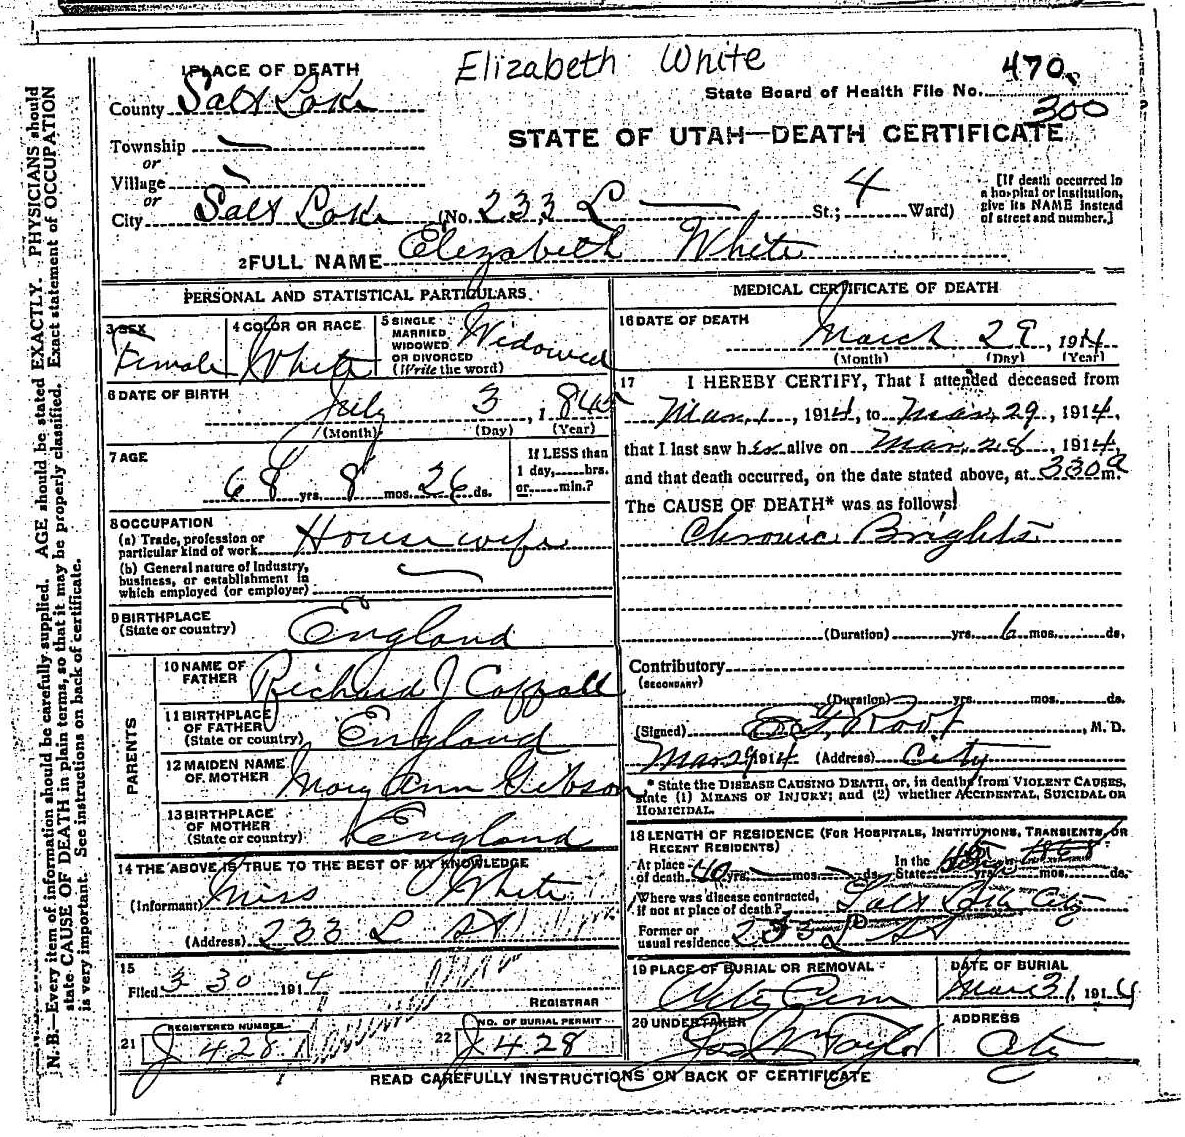 Elizabeth White
470
300
State Board of Health File No.
STATE OF UTAH—DEATH CERTIFICATE
1 PLACE OF DEATH
County Salt Lake
Township
or
Village
or
City Salt Lake (No. 233 L St.; 4 Ward)
[If death occurred in a hospital or institution, give its NAME instead of street and number.]
2 FULL NAME Elizabeth White
PERSONAL AND STATISTICAL PARTICULARS.
3 SEX Female
4 COLOR OR RACE White
5 SINGLE MARRIED WIDOWED OR DIVORCED (Write the word) Widowed
6 DATE OF BIRTH
July 3, 1845
(Month) (Day) (Year)
7 AGE
68 yrs. 8 mos. 26 ds.
If LESS than 1 day,.....hrs. or.....min.?
8 OCCUPATION
(a) Trade, profession or particular kind of work Housewife
(b) General nature of Industry, business, or establishment in which employed (or employer)
9 BIRTHPLACE (State or country) England
PARENTS
10 NAME OF FATHER Richard J Coppall
11 BIRTHPLACE OF FATHER (State or country) England
12 MAIDEN NAME OF MOTHER Mary Ann Gibson
13 BIRTHPLACE OF MOTHER (State or country) England
14 THE ABOVE IS TRUE TO THE BEST OF MY KNOWLEDGE
(Informant) Miss White
(Address) 233 L St
15
Filed 3 30 1914
REGISTRAR
REGISTERED NUMBER
21 J 428
NO. OF BURIAL PERMIT
22 J 428
MEDICAL CERTIFICATE OF DEATH
16 DATE OF DEATH
March 29, 1914
(Month) (Day) (Year)
17 I HEREBY CERTIFY, That I attended deceased from
Mar, 1, 1914, to Mar, 29, 1914,
that I last saw her alive on Mar, 28, 1914,
and that death occurred, on the date stated above, at 330 a m.
The CAUSE OF DEATH* was as follows:
Chronic Brights
(Duration) yrs. 6 mos. ds.
Contributory
(SECONDARY)
(Duration) yrs. mos. ds.
(Signed) Root, M. D.
Mar 29 1914 (Address) City
* State the DISEASE CAUSING DEATH, or, in deaths from VIOLENT CAUSES, state (1) MEANS OF INJURY; and (2) whether ACCIDENTAL, SUICIDAL OR HOMICIDAL.
18 LENGTH OF RESIDENCE (FOR HOSPITALS, INSTITUTIONS, TRANSIENTS, OR RECENT RESIDENTS)
At place of death 40 yrs. mos. ds. In the State yrs. mos. ds.
Where was disease contracted, if not at place of death? Salt Lake City
Former or usual residence 233 L St
19 PLACE OF BURIAL OR REMOVAL City Cem
DATE OF BURIAL Mar 31, 1914
20 UNDERTAKER Jos Wm Taylor
ADDRESS City
READ CAREFULLY INSTRUCTIONS ON BACK OF CERTIFICATE
N. B.—Every item of information should be carefully supplied. AGE should be stated EXACTLY. PHYSICIANS should
state CAUSE OF DEATH in plain terms, so that it may be properly classified. Exact statement of OCCUPATION
is very important. See instructions on back of certificate.